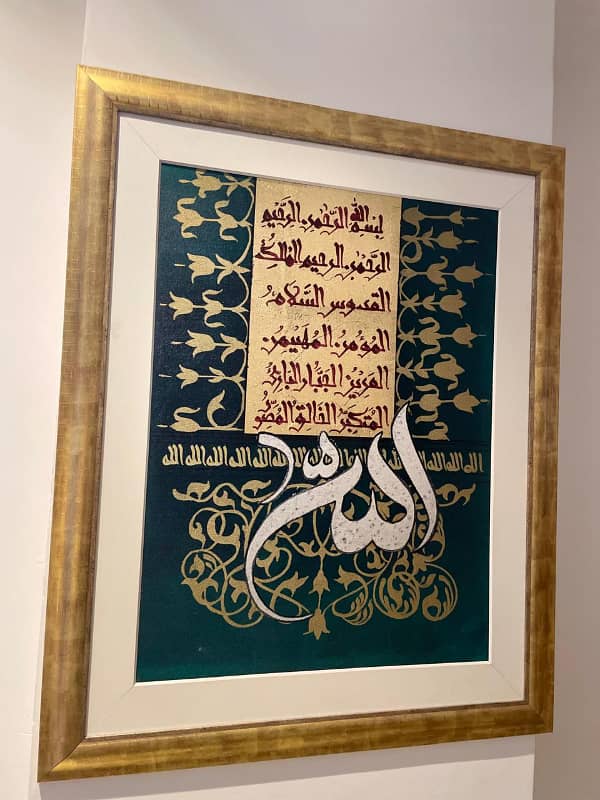 بسم الله الرَّحْمٰن الرَّحِيم
الرَّحْمٰن الرحيم المَلِكُ
القدوس السَّلَامُ
المُؤمنُ المُهَيْمن
العَزيز الجَبَّار البَارِئُ
المُتَكَبِّرُ الخَالِق المُصَوِّ
الله الله الله الله الله الله الله الله الله الله الله الله الله
الله